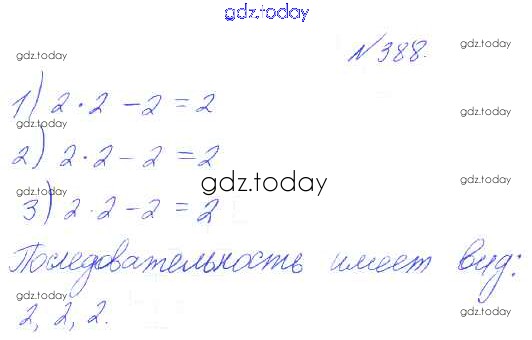 gdz.today
№388.
gdz.today
gdz.today
1) 2 · 2 - 2 = 2
gdz.today
gdz.today
2) 2 · 2 - 2 = 2
gdz.today
gdz.today
gdz.today
3) 2 · 2 - 2 = 2
Последовательность имеет вид:
gdz.today
2, 2, 2.
gdz.today